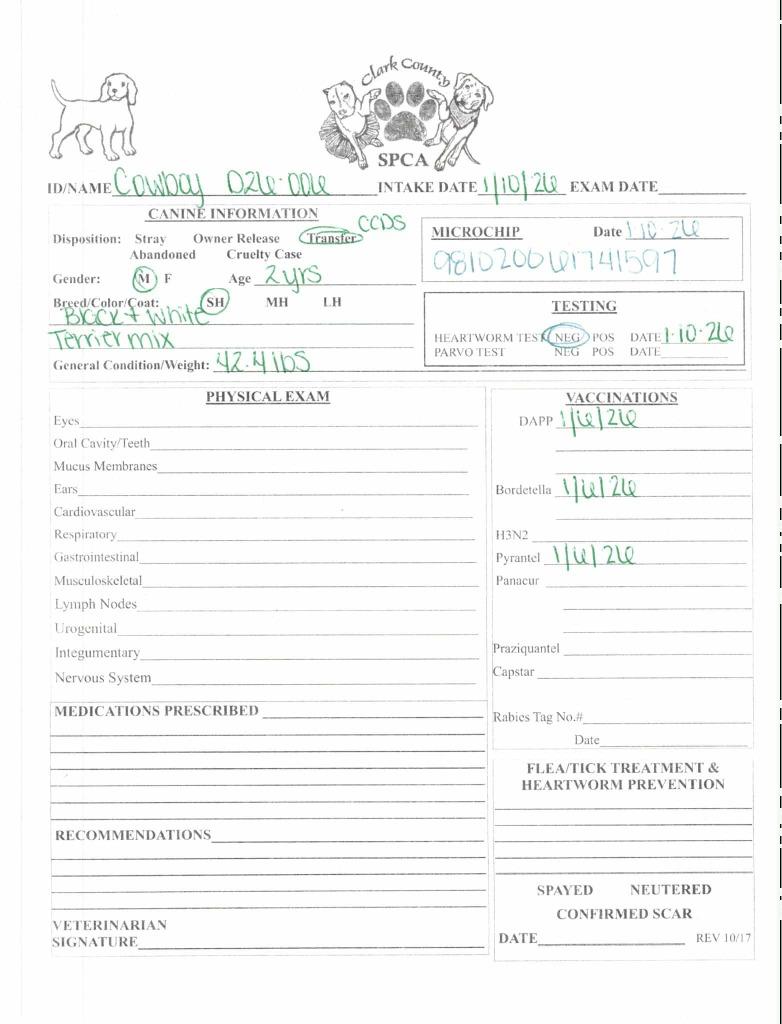 Clark County
SPCA
ID/NAME Cowboy D26-006 INTAKE DATE 1/10/26 EXAM DATE
CANINE INFORMATION
Disposition: Stray Owner Release Transfer CCDS
Abandoned Cruelty Case
Gender: M F Age 2 yrs
Breed/Color/Coat: SH MH LH
Black + White
Terrier mix
General Condition/Weight: 42.4 lbs
MICROCHIP Date 1-10-26
981020061741597
TESTING
HEARTWORM TEST NEG POS DATE 1-10-26
PARVO TEST NEG POS DATE
PHYSICAL EXAM
Eyes
Oral Cavity/Teeth
Mucus Membranes
Ears
Cardiovascular
Respiratory
Gastrointestinal
Musculoskeletal
Lymph Nodes
Urogenital
Integumentary
Nervous System
MEDICATIONS PRESCRIBED
RECOMMENDATIONS
VETERINARIAN
SIGNATURE
VACCINATIONS
DAPP 1/6/26
Bordetella 1/6/26
H3N2
Pyrantel 1/6/26
Panacur
Praziquantel
Capstar
Rabies Tag No.#
Date
FLEA/TICK TREATMENT &
HEARTWORM PREVENTION
SPAYED NEUTERED
CONFIRMED SCAR
DATE REV 10/17